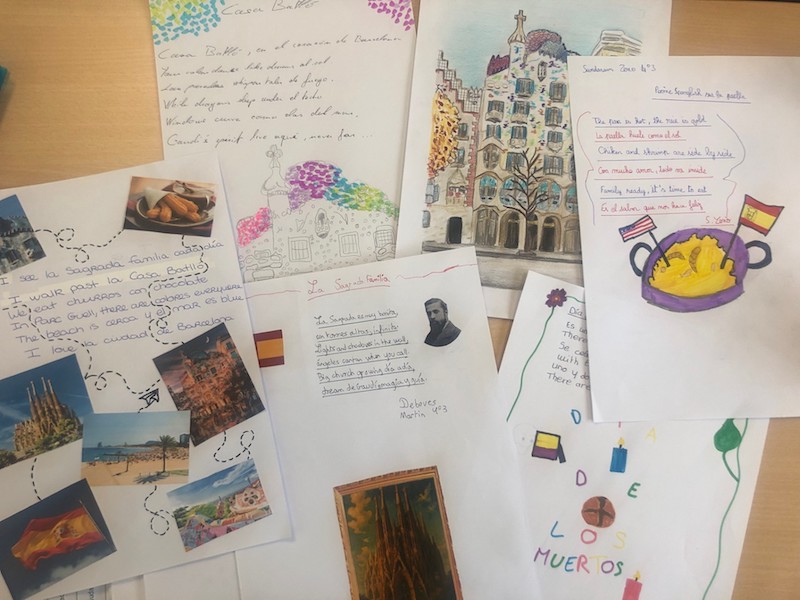 Casa Batlló
Casa Batlló, en el corazón de Barcelona
Your colors dance like dreams al sol
Las paredes whisper tales de fuego.
While dragons sleep under el techo
Windows curve como olas del mar.
Gaudí's spirit live aquí, never far ...
4°3
Poème Spanglish sur la paella
The pan is hot, the rice is gold
La paella huele como el sol
Chicken and shrimp are side by side
Con mucho amor, todo se mide
Family ready, it's time to eat
Es el sabor que nos hace feliz
I see la Sagrada Familia cada día
I walk past la Casa Batllo
We eat churros con chocolate
In Parc Güell there are colores everywhere
The beach is cerca y el mar es blue
I love la ciudad de Barcelona
La Sagrada Familia
La Sagrada es muy bonita,
con torres altas, infinita
Lights and shadows in the wall,
Angeles cantan when you call.
Big church
dream de Gaudi, magia y guía.
Debeves
Martin 4°3
Día
Es un
There
Se ce
With
uno y d
There are
DIA
DE
LOS
MUERTOS